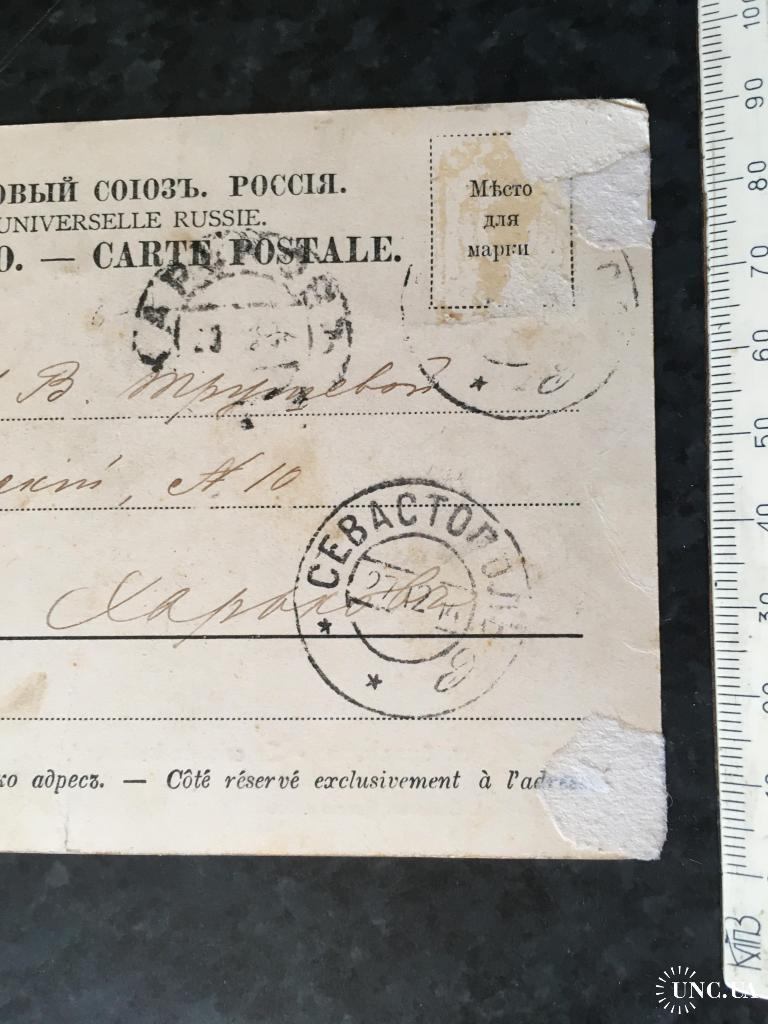 ОВЫЙ СОЮЗЪ. РОССІЯ.
UNIVERSELLE RUSSIE.
О. — CARTE POSTALE.
Мѣсто
для
марки
В. Трушевой
№ 10
СЕВАСТОПОЛЬ
27 12
Харьковъ
ко адресъ. — Côté réservé exclusivement à l'adresse
100
90
80
70
60
50
40
30
20
10
0
КПВ
UNC.UA